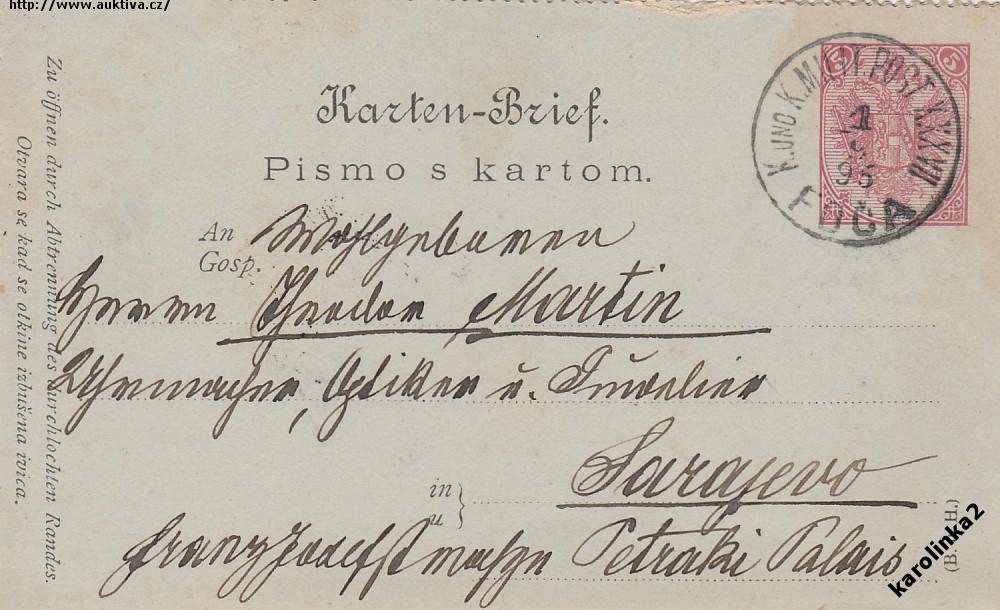 http://www.auktiva.cz/
Karten-Brief.
Pismo s kartom.
K. UND K. MILIT. POST XXXVII
1
95
FOČA
5
5
An Wohlgeboren
Gosp.
Herrn Theodor Martin
Uhrmacher, Optiker u. Juwelier
in
u
Sarajevo
Franz Josefstrasse Petraki Palais
Zu öffnen durch Abtrennung des durchlochten Randes.
Otvara se kad se otkine izbušena ivica.
(B. H.)
karolinka2